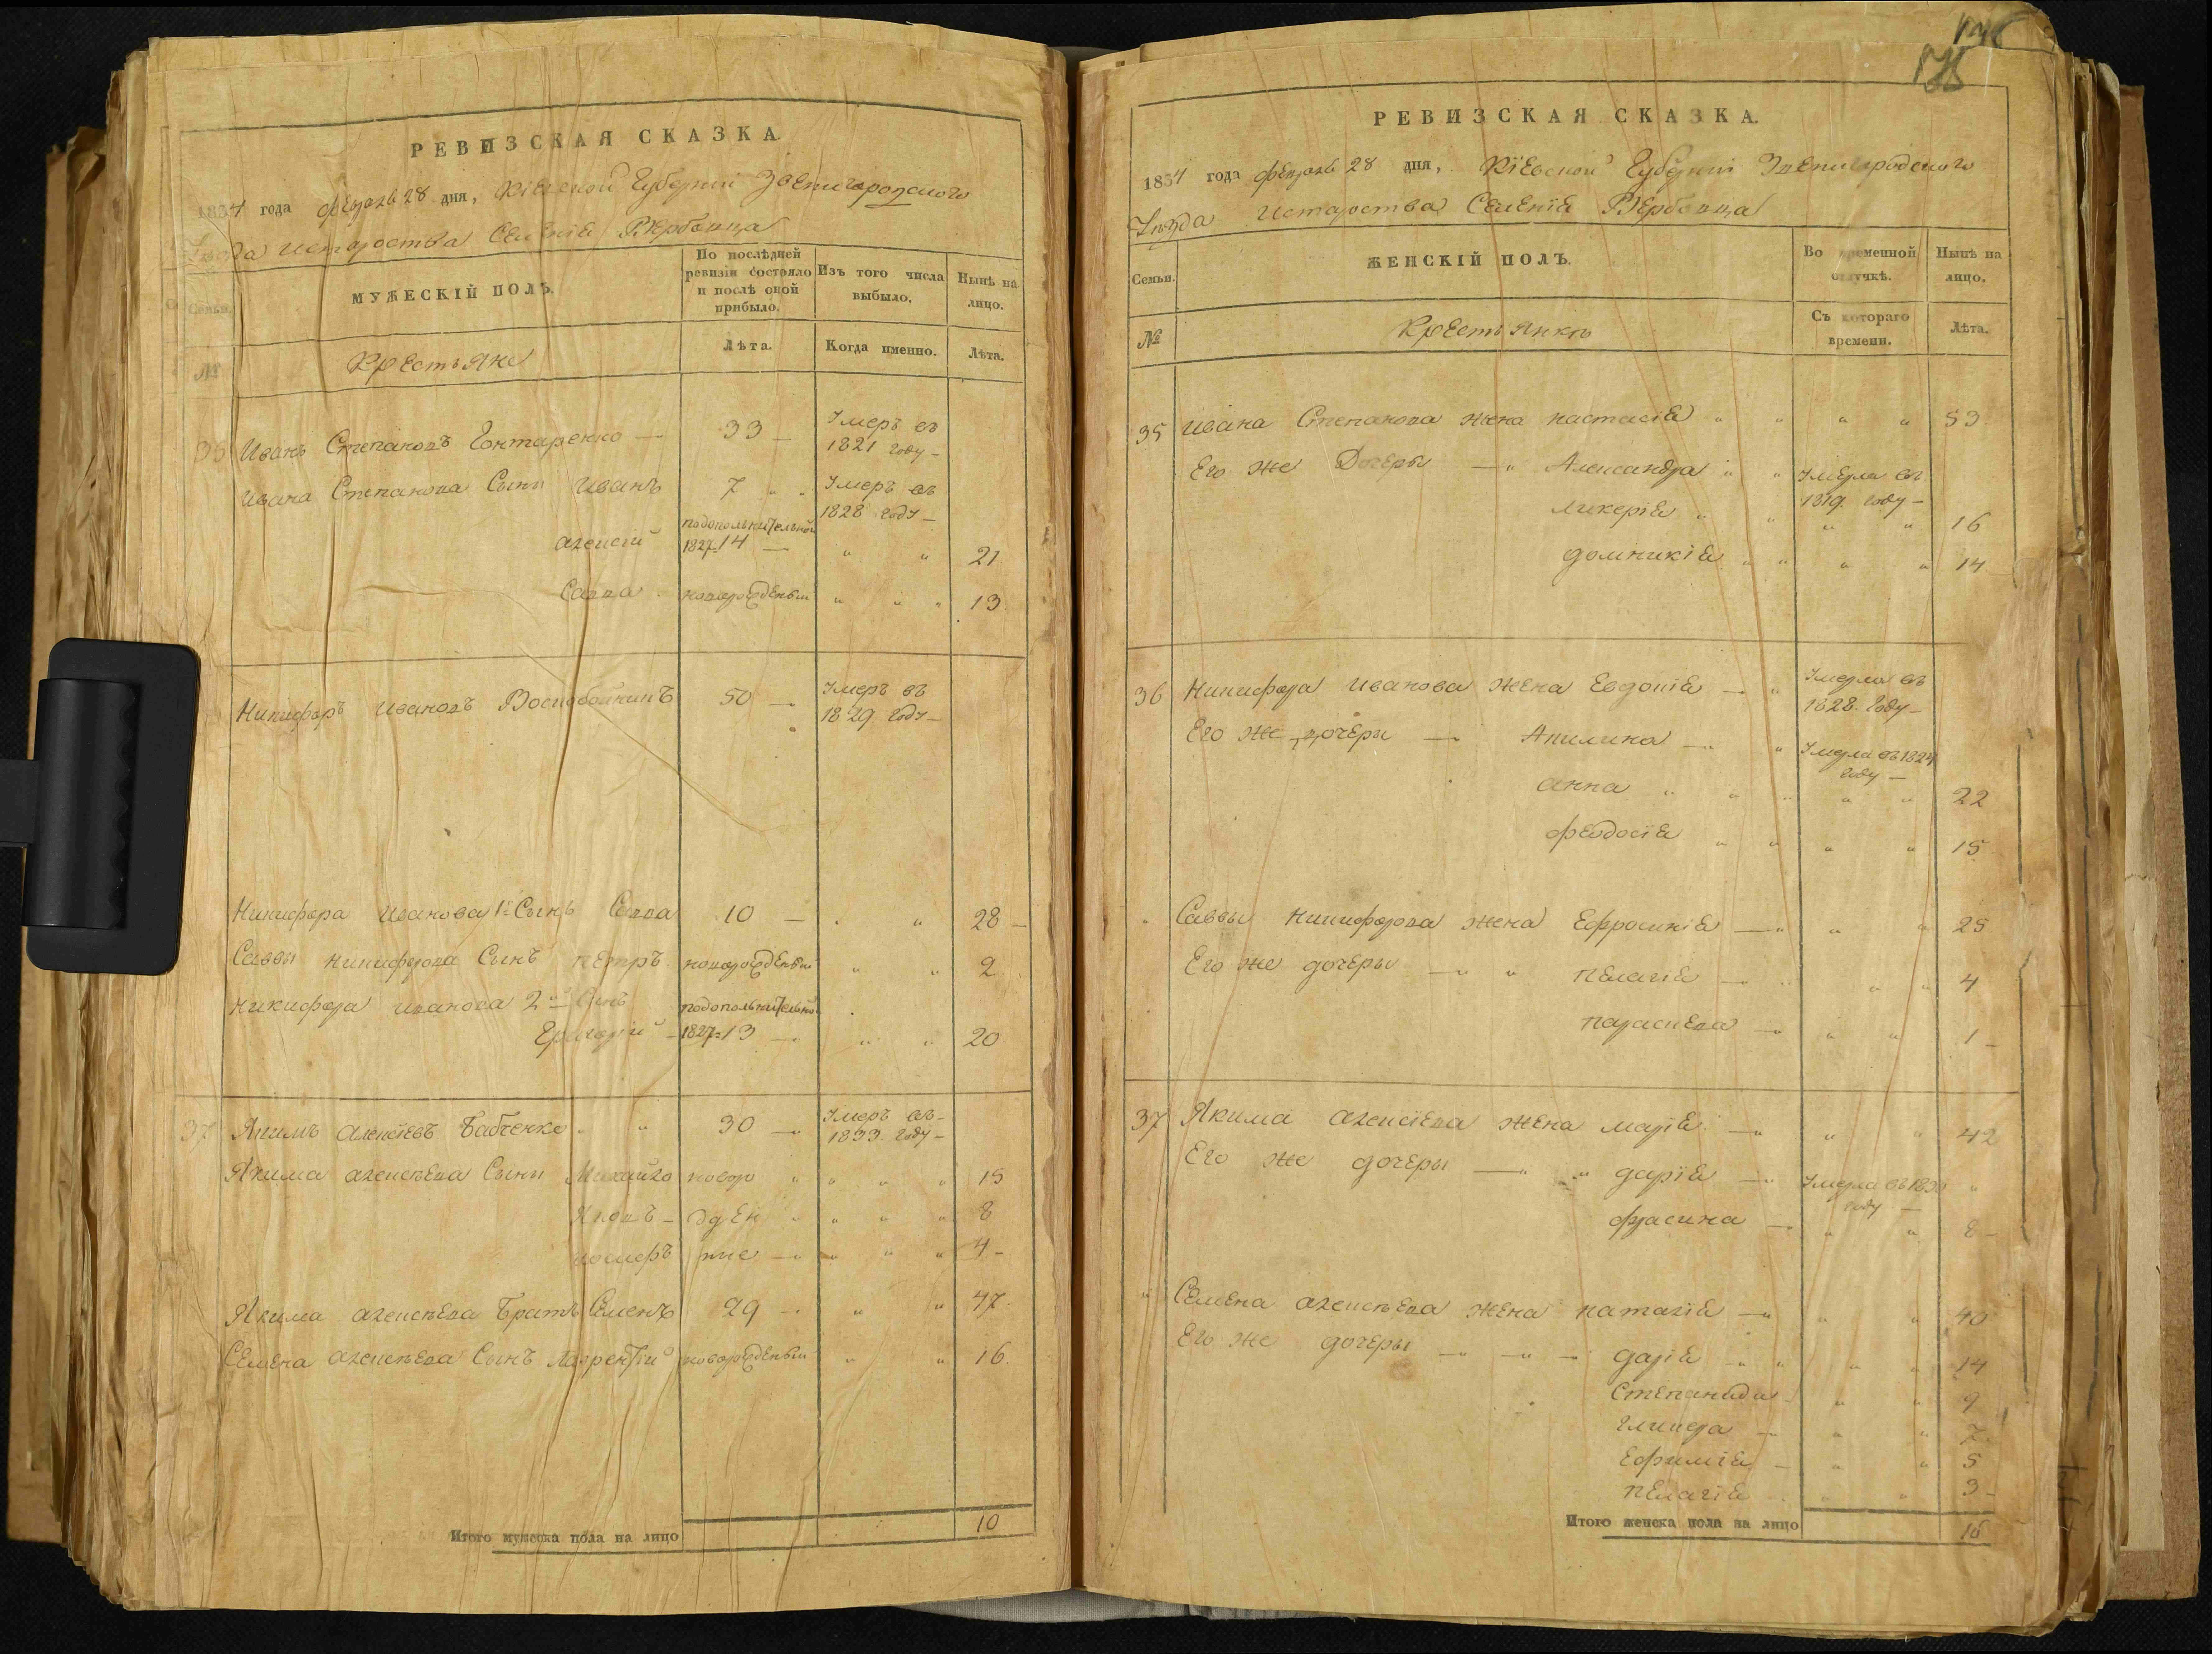 РЕВИЗСКАЯ СКАЗКА.
1834 года февраля 28 дня, Кіевской Губерніи Звенигородского
Уѣзда Истароства Селенія Вербовца
Семьи.
МУЖЕСКІЙ ПОЛЪ.
По послѣдней ревизіи состояло и послѣ оной прибыло.
Изъ того числа выбыло.
Нынѣ на лицо.
№
Крестьяне
Лѣта.
Когда именно.
Лѣта.
35 Иванъ Степановъ Гонтаренко — 33 — Умеръ въ
1821 году —
Ивана Степанова Сыны Иванъ 7 " " Умеръ въ
1828 году —
подополнительной
алексій 1827=14 — " " 21
Савва новорожденый " " " 13
Никифоръ Ивановъ Воскобойникъ 50 — Умеръ въ
1829 году —
Никифора Иванова 1й Сынъ Савва 10 — " " 28 —
Саввы никифорова Сынъ петръ новорожденый " " 2
никифора иванова 2й Сынъ подополнительной
Григорій — 1827=13 — " " 20
37 Якимъ алексіевъ Бабченко " " 30 — Умеръ въ —
1833 году —
Якима алексѣева Сыны Михайло новоро " " " " 15
Яковъ — жден " " " " 8
ные — " " " 4 —
Якима алексѣева Братъ Семенъ 29 — " " 47
Семена алексѣева Сынъ Лаврентій новорожденый " " 16.
Итого мужеска пола на лицо 10
175
РЕВИЗСКАЯ СКАЗКА.
1834 года февраля 28 дня, Кіевской Губерніи Звенигородского
Уѣзда Истароства Селенія Вербовца
Семьи.
ЖЕНСКІЙ ПОЛЪ.
Во временной отлучкѣ.
Нынѣ на лицо.
№
Крестьянкѣ
Съ котораго времени.
Лѣта.
35 Ивана Степанова жена настасія " " " " 53
Его же Дочеры — " Александра " " Умерла въ
1819. году —
ликерія " " " " 16
домникія " " " " 14
36 Никифора Иванова жена Евдокія — " Умерла въ
1828. году —
Его же дочеры — Акилина — " Умерла въ 1824
году —
анна " " " " " 22
феодосія " " " " 15
" Саввы Никифорова жена Ефросинія — " " " 25
Его же дочеры — " " пелагія — " " " 4
параскева — " " " 1 —
37 Якима алексіева жена марія — " " " 42
Его же дочеры — " " дарія — Умерла въ 1830 "
году —
фрасина — " " 8 —
" Семена алексѣева жена наталія — " " " 40
Его же дочеры — " — " — дарія — " " " " 14
Степанида " " 9
гликера — " " 7
Ефимія — " " 5
пелагія " " 3 —
Итого женска пола на лицо 16